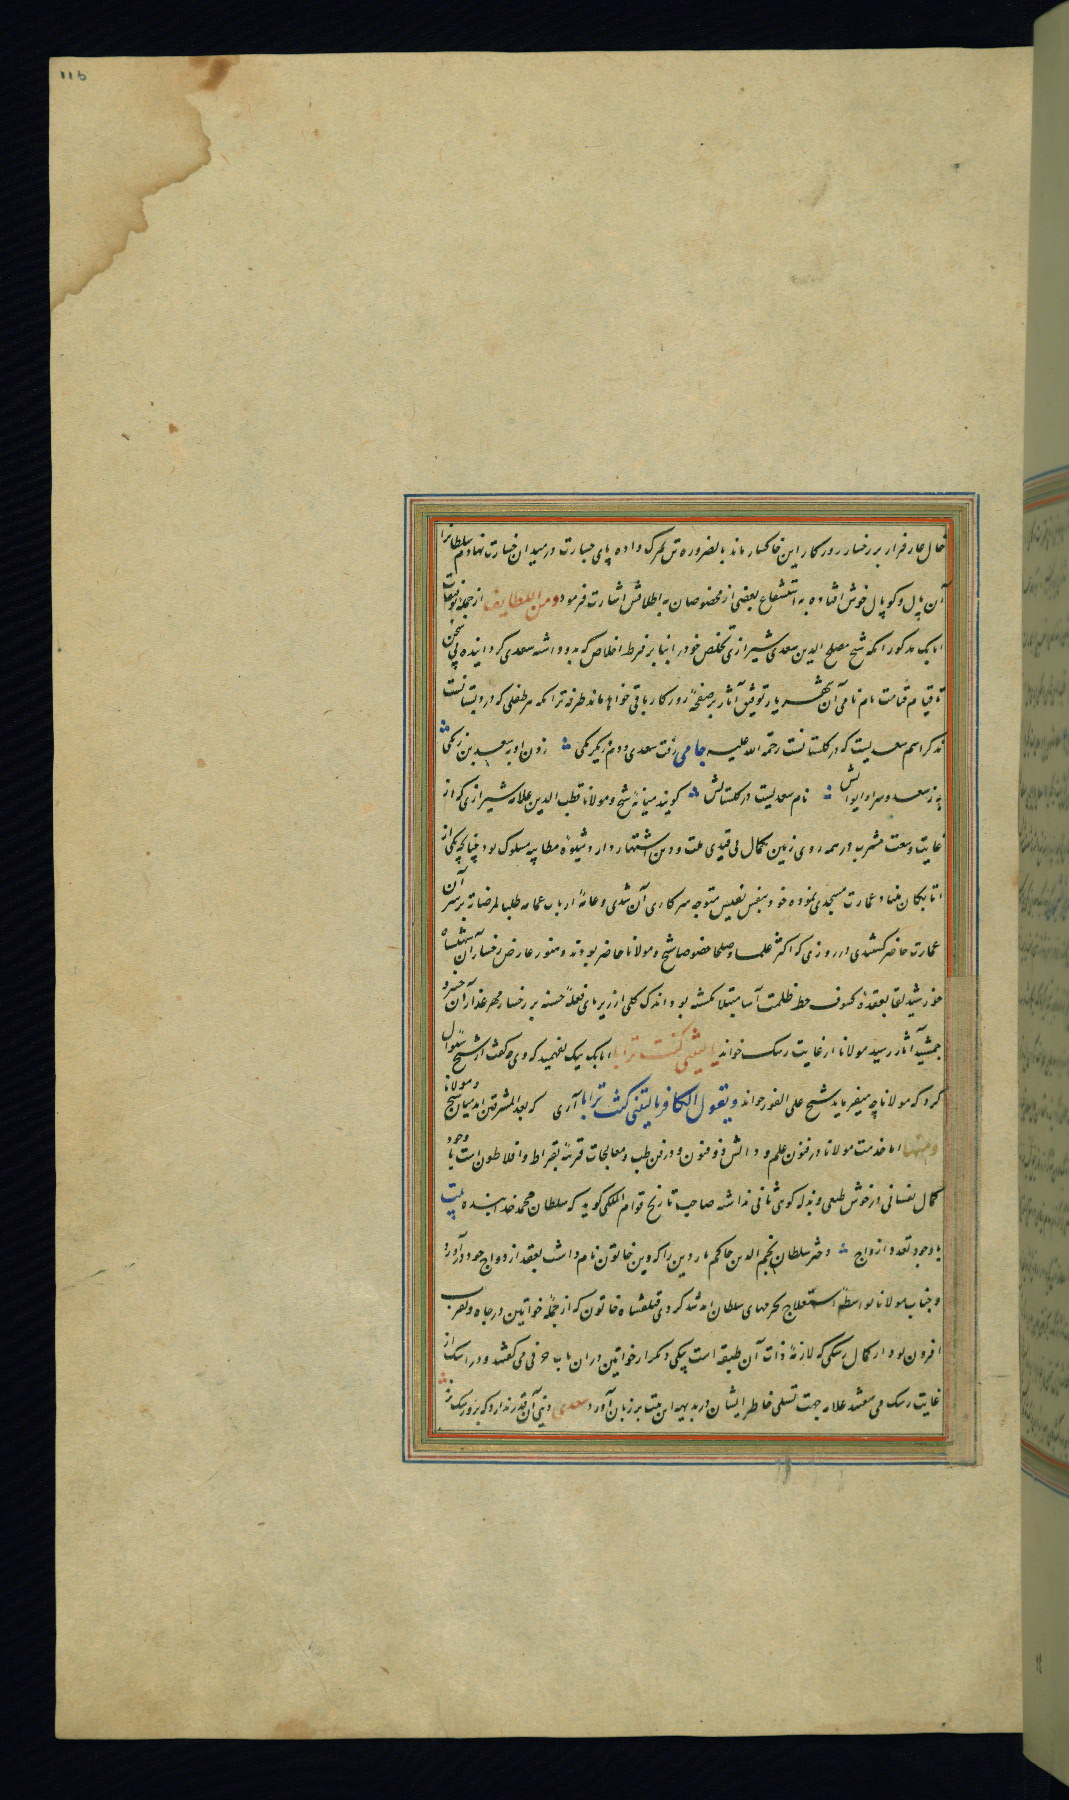 115
خال عار فرار بر رخسار روزگار این خاکسار ماند بالضروره تن بمرک داده پای جسارت در میدان خسارت نهادم سلطانرا
آن پال و کوپال خوش افتاده به استشفاع بعضی از مخصوصان به اطلاقش اشارت فرمود ومن اللطایف از جمله توفیقات
اتابک مذکور آنکه شیخ مصلح الدین سعدی شیرازی تخلص خود را بنا بر فرط اخلاص که بدو داشته سعدی کردانیده پی سخن
تا قیام قیامت نام نامی آن شهریار توفیق آثار بر صفحهٔ روزکار باقی خواهد ماند طرفه تر آنکه هر طفلی که در دبستانست
تذکر اسم سعدیست که در کلستانست رحمة الله علیه جامی رفت سعدی و دم زیکرنکی زدن او به سعد بن زنکی
به ز سعد و سرا و ایوانش نام سعدیست در کلستانش کویند میانهٔ شیخ و مولانا قطب الدین علامه شیرازی که از
غایت وسعت مشرب در همه روی زمین بکمال بی قیدی ملت و دین اشتهار دارد شیوهٔ مطایبه مسلوک بود چنانچه یکی از
اتابکان بنیاد عمارت مسجدی نموده خود بنفس نفیس متوجه سرکاری آن شدی و عامهٔ ارباب عمامه طلبا لمرضاته بر سر آن
عمارت حاضر کشتندی در روزی که اکثر علما و صلحا خصوصا شیخ و مولانا حاضر بودند و هنوز عارض رخسار آن شهنشاه
خورشید لقا بعقدهٔ کسوف خط ظلمت آسا مبتلا نکشته بود اندک کلی از زیر پای فعله جسته بر رخسار مهر عذار آن خسرو
جمشید آثار رسید مولانا از غایت رشک خواند یا لیتنی کنت ترابا اتابک نیک نفهمید که وی چه کفت از شیخ سئوال
کرد که مولانا چه میفرماید شیخ علی الفور خواند ویقول الکافر یالیتنی کنت ترابا آری که بعد المشرقین آمد میان شیخ و مولانا
ومنها اما خدمت مولانا در فنون علم و دانش ذو فنون و در فن طب و معالجات قرینهٔ بقراط و افلاطون است با وجود
کمال نفسانی در خوش طبعی و بذله کوئی ثانی نداشته صاحب تاریخ قوام الملکی کوید که سلطان محمد خدابنده بیت
با وجود تعدد ازواج دختر سلطان نجم الدین حاکم ماردین را که دین خاتون نام داشت بعقد ازدواج خود درآورد
و جناب مولانا بواسطهٔ استعلاج بحرمهای سلطان آمد شد کردی قتلغشاه خاتون که از جملهٔ خواتین در جاه و تقرب
افزون بود از کمال رشکی که لازمهٔ ذات آن طبقه است پیکی دیکر از خواتین در آن باب حرفی می کفتند و در اشک از
غایت رشک می سفتند علامه جهت تسلی خاطر ایشان در بدیهه این بیت بر زبان آورد سعدی دنیی آن قدر ندارد که برو رشک برند